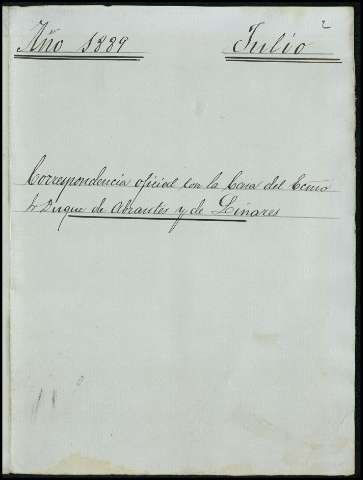 2
Año 1889 Julio
Correspondencia oficial con la Casa del Ecmo
Sr Duque de Abrantes y de Linares